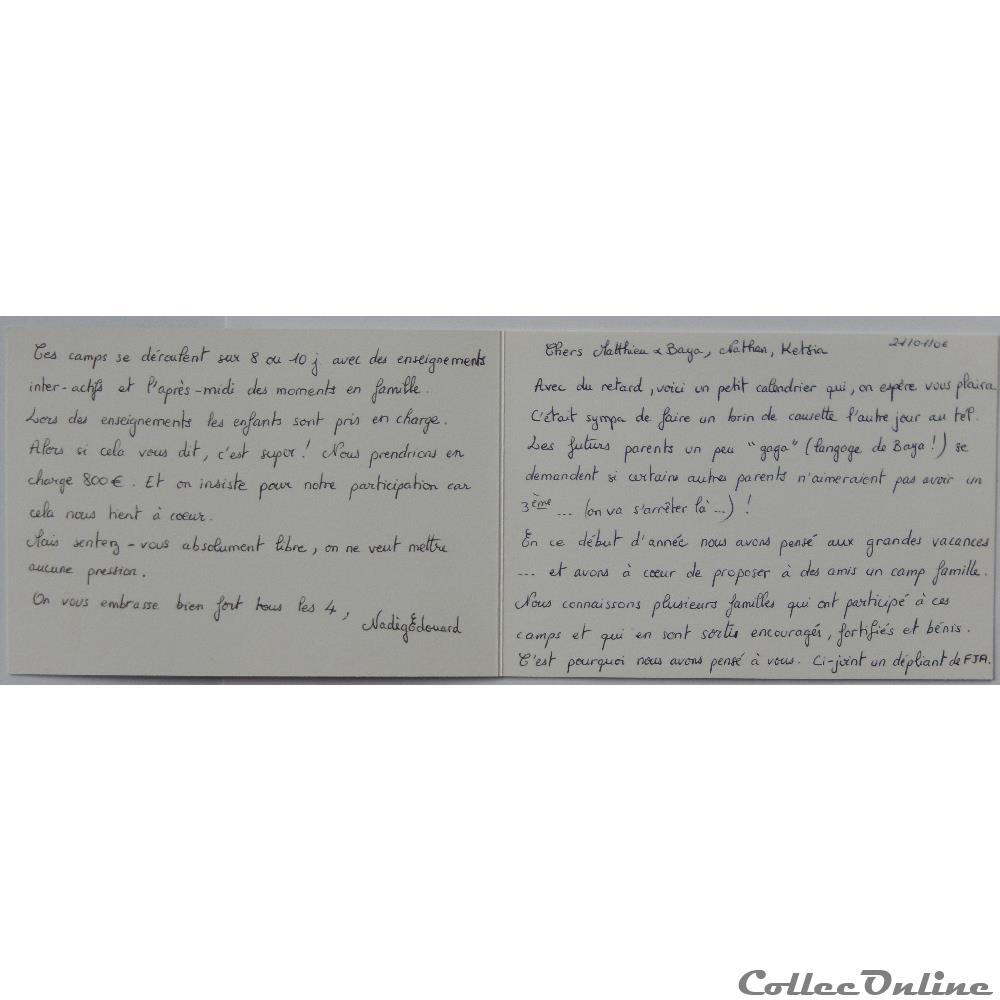 21/01/06
Chers Matthieu & Baya, Nathan, Ketsia
Avec du retard, voici un petit calendrier qui, on espère vous plaira
C'était sympa de faire un brin de causette l'autre jour au tél.
Les futurs parents un peu "gaga" (langage de Baya!) se
demandent si certains autres parents n'aimeraient pas avoir un
3ème ... (on va s'arrêter là ...) !
En ce début d'année nous avons pensé aux grandes vacances
... et avons à coeur de proposer à des amis un camp famille.
Nous connaissons plusieurs familles qui ont participé à ces
camps et qui en sont sortis encouragés, fortifiés et bénis.
C'est pourquoi nous avons pensé à vous. Ci-joint un dépliant de FJA.
Ces camps se déroulent sur 8 ou 10 j avec des enseignements
inter-actifs et l'après-midi des moments en famille.
Lors des enseignements les enfants sont pris en charge.
Alors si cela vous dit, c'est super! Nous prendrions en
charge 800€. Et on insiste pour notre participation car
cela nous tient à coeur.
Mais sentez-vous absolument libre, on ne veut mettre
aucune pression.
On vous embrasse bien fort tous les 4,
NadègEdouard
CollecOnline